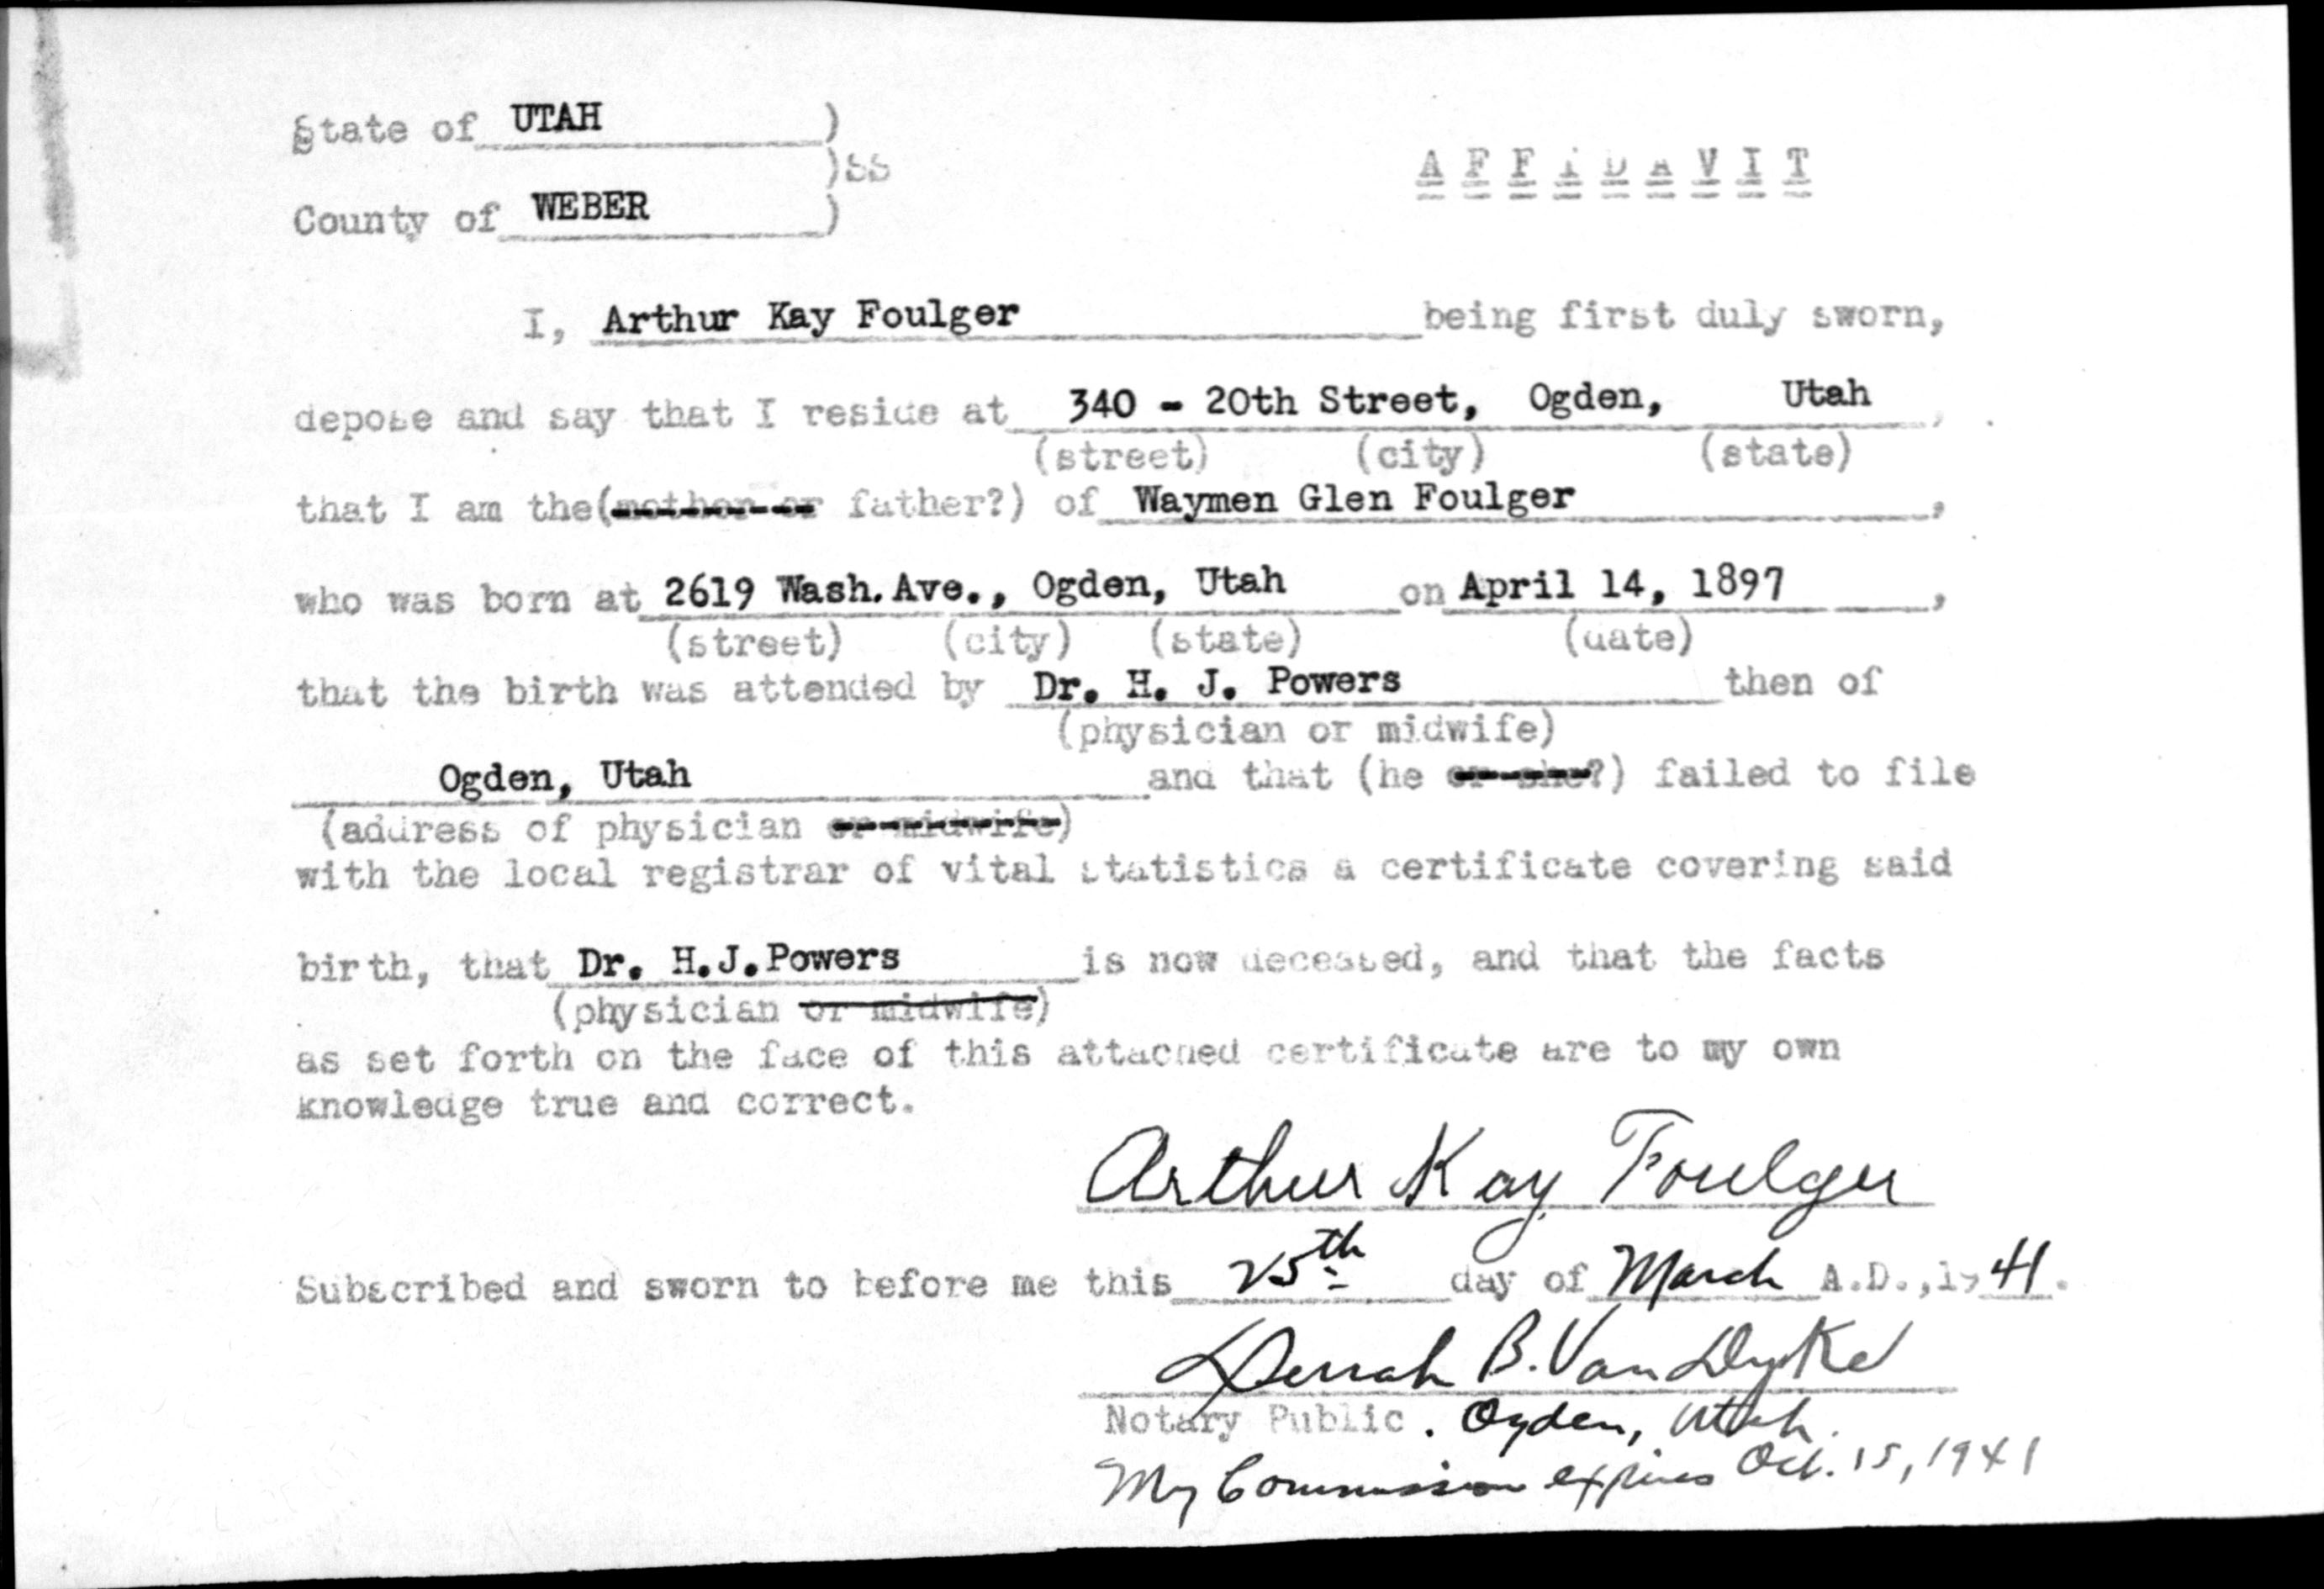 State of UTAH )
)SS
A F F I D A V I T
County of WEBER )
I, Arthur Kay Foulger being first duly sworn,
depose and say that I reside at 340 - 20th Street, Ogden, Utah ,
(street) (city) (state)
that I am the(mother or father?) of Waymen Glen Foulger ,
who was born at 2619 Wash. Ave., Ogden, Utah on April 14, 1897 ,
(street) (city) (state) (date)
that the birth was attended by Dr. H. J. Powers then of
(physician or midwife)
Ogden, Utah and that (he or she?) failed to file
(address of physician or midwife)
with the local registrar of vital statistics a certificate covering said
birth, that Dr. H.J.Powers is now deceased, and that the facts
(physician or midwife)
as set forth on the face of this attached certificate are to my own
knowledge true and correct.
Arthur Kay Foulger
Subscribed and sworn to before me this 25th day of March A.D.,19 41.
Derrah B. Van Dyke
Notary Public . Ogden, Utah.
My Commission expires Oct. 15, 1941